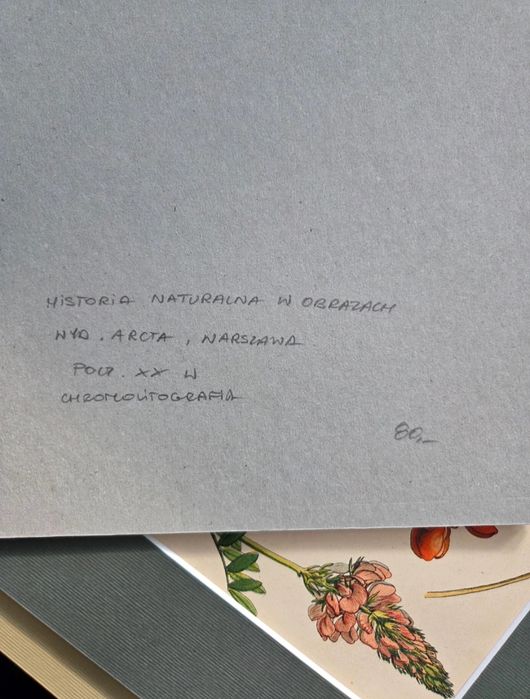 HISTORIA NATURALNA W OBRAZACH
WYD. ARCTA, WARSZAWA
POCZ. XX W
CHROMOLITOGRAFIA
80,-